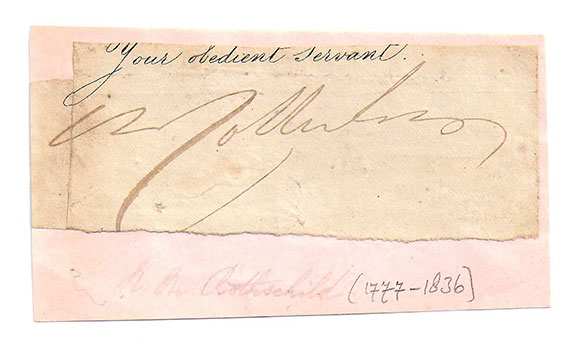 Your obedient servant.
N M Rothschild (1777-1836)